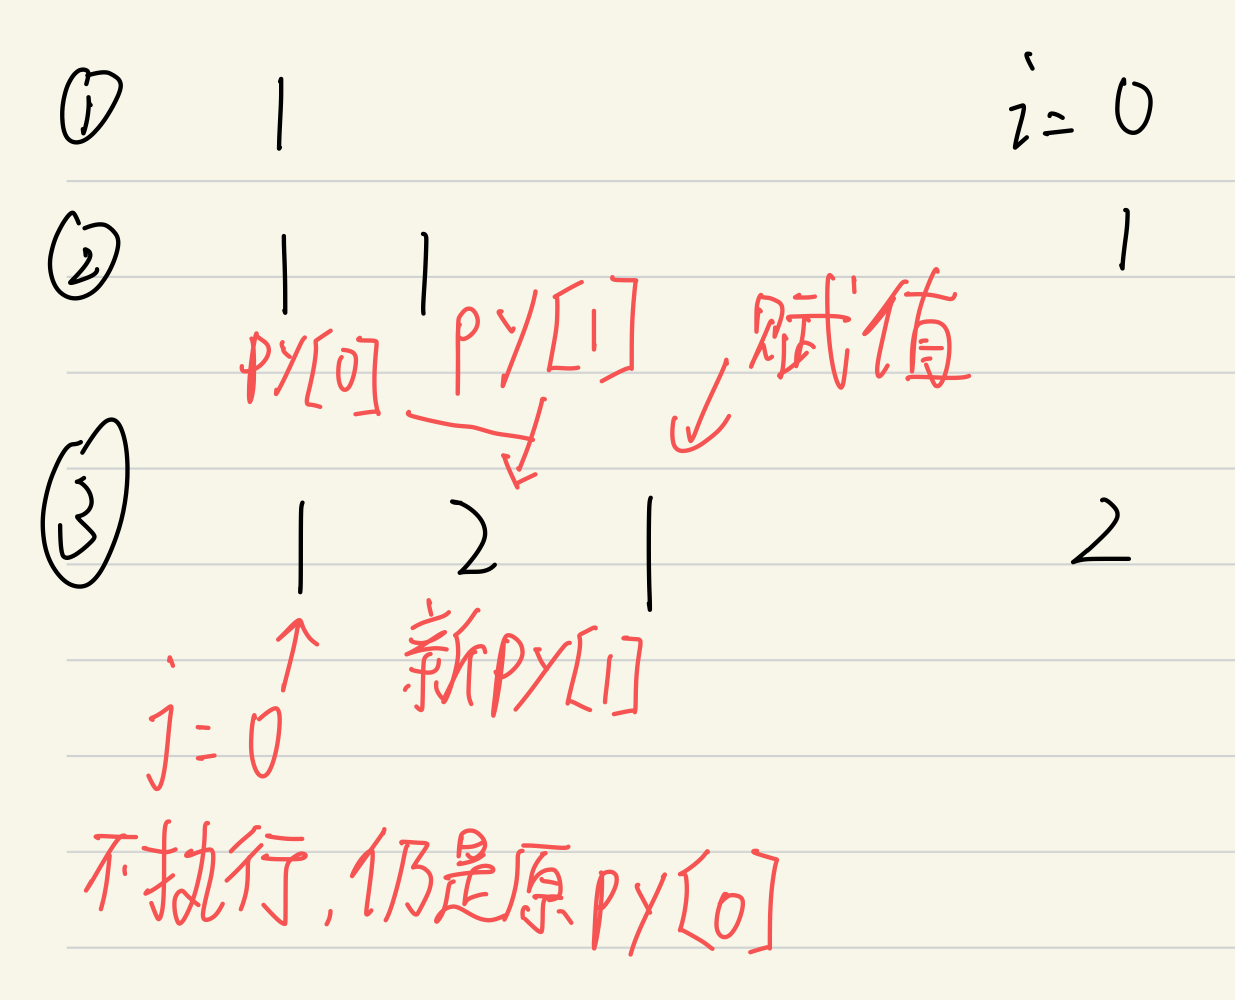 ① 1 i = 0
② 1 1 1
py[0] py[1] 赋值
③ 1 2 1 2
新py[1]
j = 0
不执行,仍是原py[0]